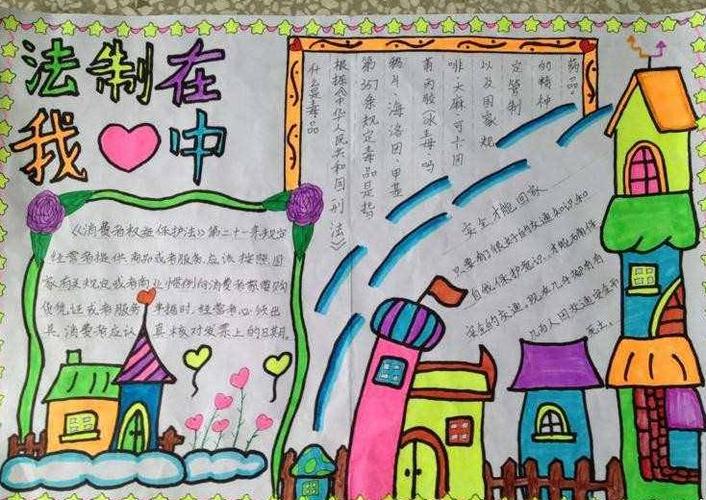 法制在
我心中
《消费者权益保护法》第二十一条规定
经营者提供商品或者服务,应该按照国
家有关规定或者商业惯例向消费者索要购
货凭证或者服务单据时,经营者必须出
具。消费者应认真核对发票上的日期。
什么是毒品
根据《中华人民共和国刑法》
第357条规定毒品是指
鸦片、海洛因、甲基
苯丙胺(冰毒)、吗
啡、大麻、可卡因
以及国家规
定管制
的精神
药品。
安全才能回家
只要我们很好的交通知识和
自我保护意识,才能
安全的交通,现在几乎都有
几百人因交通安全而